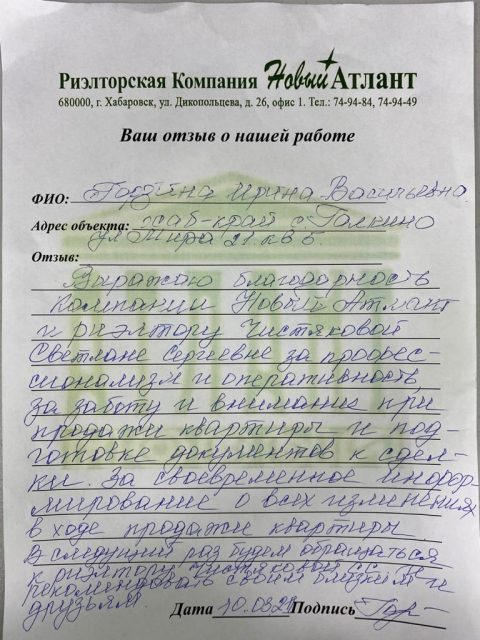 Риэлторская Компания Новый Атлант
680000, г. Хабаровск, ул. Дикопольцева, д. 26, офис 1. Тел.: 74-94-84, 74-94-49
Ваш отзыв о нашей работе
ФИО: Ирина Васильевна
Адрес объекта: хаб-край с. Галкино
ул Мира 21. кв 6.
Отзыв:
Выражаю благодарность
компании Новый Атлант
и риэлтору Чистяковой
Светлане Сергеевне за профес-
сионализм и оперативность
за заботу и внимание при
продажи квартиры и под-
готовке документов к сдел-
ки. За своевременное инфор
мирование о всех изменениях
в ходе продажи квартиры
В следующий раз будем обращаться
к риэлтору Чистяковой С.С. и
рекомендовать своим близким и
друзьям.
Дата 10.03.21 Подпись